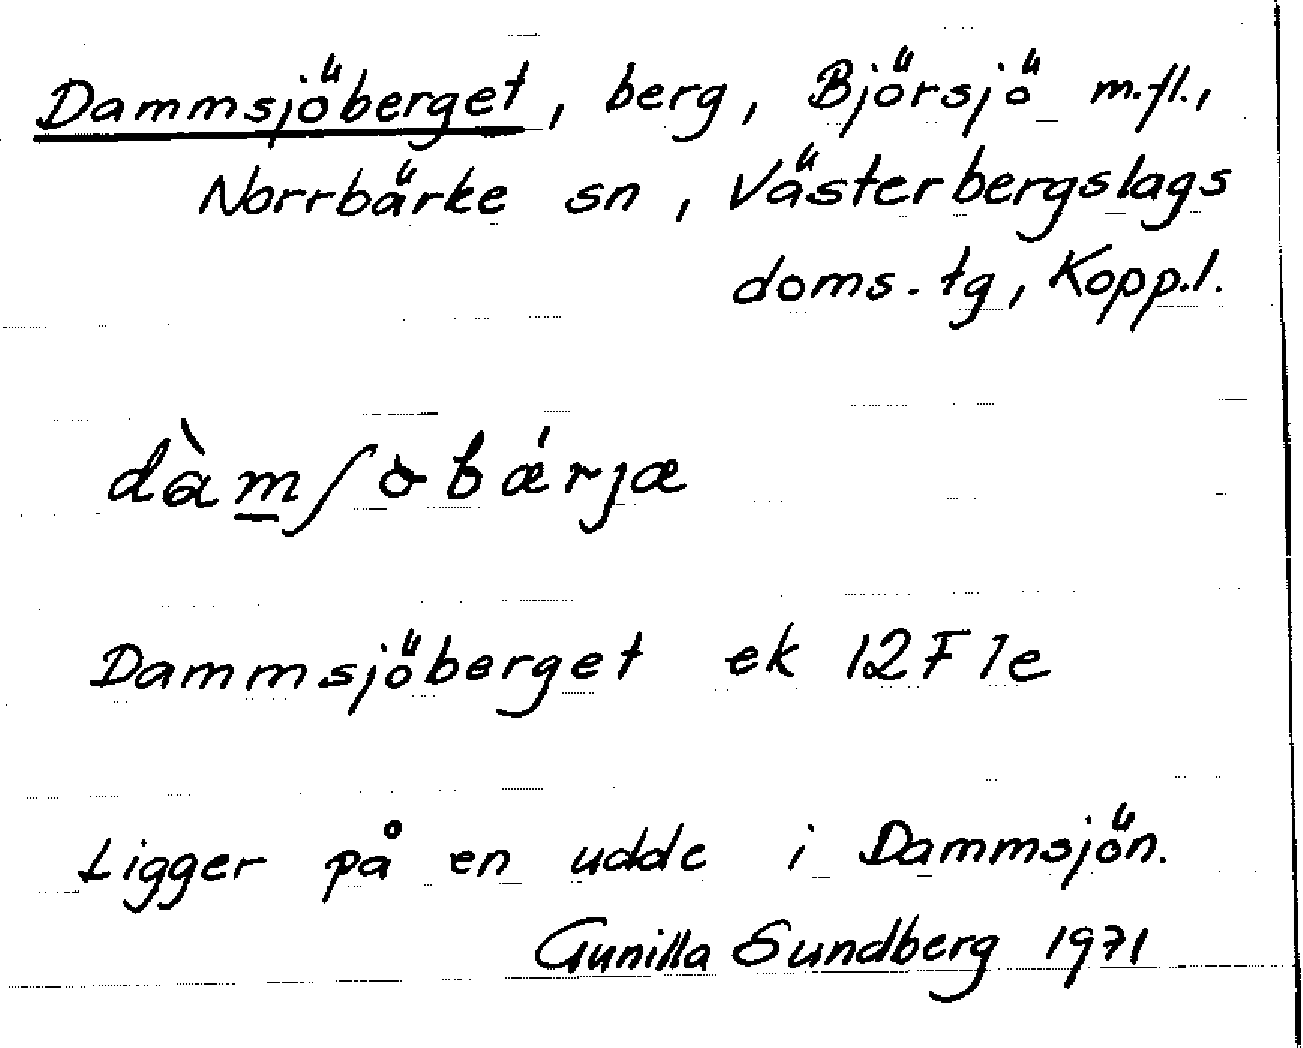 Dammsjöberget, berg, Björsjö m.fl.,
Norrbärke sn, Västerbergslags
doms.tg, Kopp.l.
dàmʃobǽrjæ
Dammsjöberget ek 12F 1e
Ligger på en udde i Dammsjön.
Gunilla Sundberg 1971